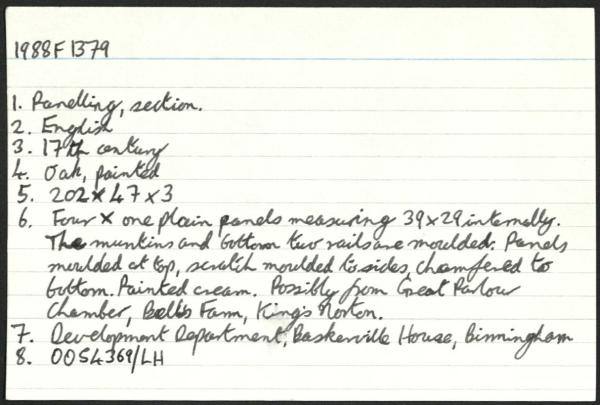 1988F1379
1. Panelling, section.
2. English
3. 17th century
4. Oak, painted
5. 202 x 47 x 3
6. Four x one plain panels measuring 39 x 29 internally.
The muntins and bottom two rails are moulded. Panels
moulded at top, scratch moulded to sides, chamfered to
bottom. Painted cream. Possibly from Great Parlour
Chamber, Bells Farm, King's Norton.
7. Development Department, Baskerville House, Birmingham
8. 00S4369/LH